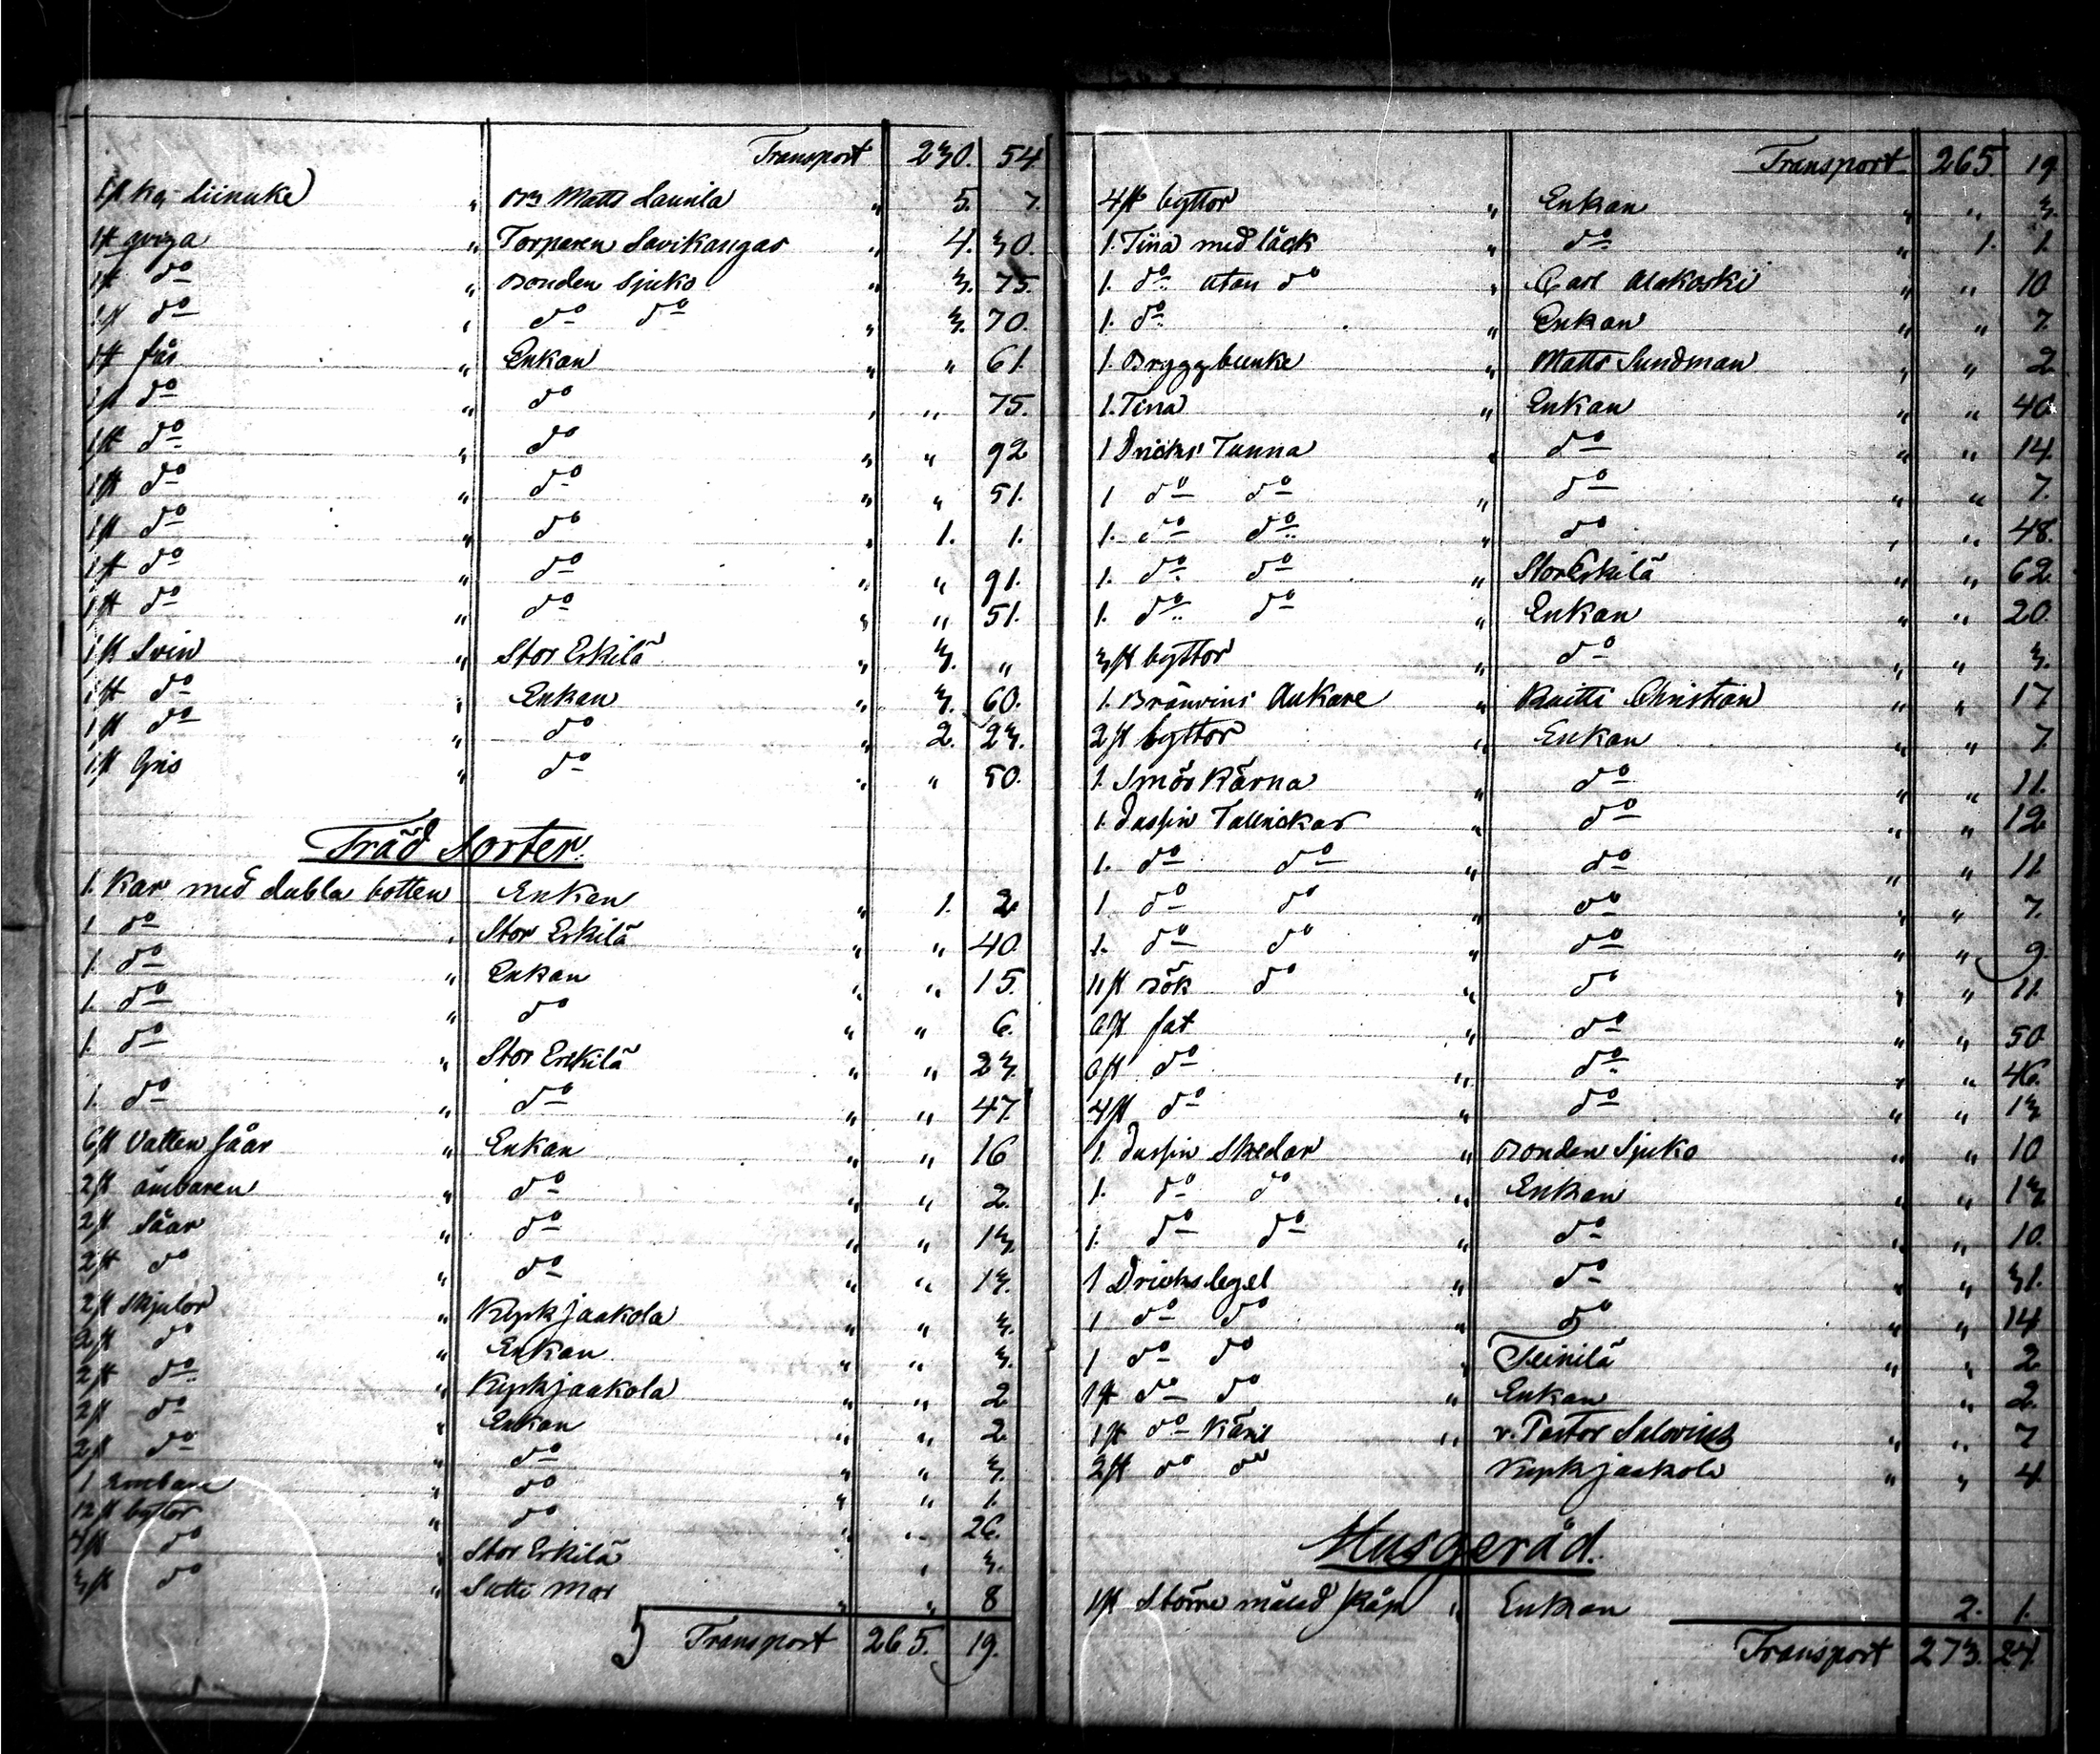 Transport 230. 54
1 st ko Liinuke " Bn Matts Launila " 5. 7.
1 st qviga " Torparen Savikangas " 4. 30.
1 st do " Bonden Sjuko " 3. 75.
1 st do " do do " 3. 70.
1 st får " Enkan " " 61.
1 st do " do " " 75.
1 st do " do " " 92
1 st do " do " " 51.
1 st do " do " 1. 1.
1 st do " do " " 91.
1 st do " do " " 51.
1 st Svin " Stor Erkilä " 3. "
1 st do " Enkan " 3. 60.
1 st do " do " 2. 23.
1 st Gris " do " " 50.
Träd Sorter.
1. Kar med dubla botten Enkan " 1. 2
1 do " Stor Erkilä " " 40
1. do " Enkan " " 15.
1. do " do " " 6.
1. do " Stor Erkilä " " 23.
1. do " do " " 47
6 st Vatten Såar " Enkan " " 16
2 st ämbaren " do " " 2.
2 st Såar " do " " 13.
2 st do " do " " 13.
2 st Skjulor " Kyrkjaakola " " 3.
2 st do " Enkan " " 3.
2 st do " Kyrkjaakola " " 2
2 st do " Enkan " " 2
2 st do " do " " 3.
1 ämbare " do " " 1.
12 st byttor " do " " 26.
4 st do " Stor Erkilä " " 3.
3 st do " Mor " " 8
Transport 265. 19.
Transport 265. 19
4 st byttor " Enkan " " 3.
1. Tina med läck " do " 1. 1.
1. do utan do " Carl Alakoski " " 10
1. do " Enkan " " 7.
1. Bryggbunke " Matts Sundman " " 2
1. Tina " Enkan " " 40
1 Dricks Tunna " do " " 14.
1 do do " do " " 7.
1. do do " do " " 48.
1. do do " Stor Erkilä " " 62
1. do do " Enkan " " 20.
3 st byttor " do " " 3.
1. Bränvins Ankare " Christian " " 17
2 st byttor " Enkan " " 7.
1. Smör Kärna " do " " 11.
1. Dussin Tallrickar " do " " 12
1. do do " do " " 11
1 do do " do " " 7.
1. do do " do " " 9.
11 st do " do " " 11.
6 st fat " do " " 50
6 st do " do " " 46.
4 st do " do " " 13
1. Dussin Skedar " Bonden Sjuko " " 10
1. do do " Enkan " " 13
1. do do " do " " 10.
1 Drickslegel " do " " 31.
1 do do " do " " 14
1 do do " Teinilä " " 2
1 st do do " Enkan " 2.
1 st do " v. Pastor Salovius " " 7
2 st do do Kyrkjaakola " " 4
Husgeråd.
1 st Större målad skåp " Enkan 2. 1.
Transport 273. 24.